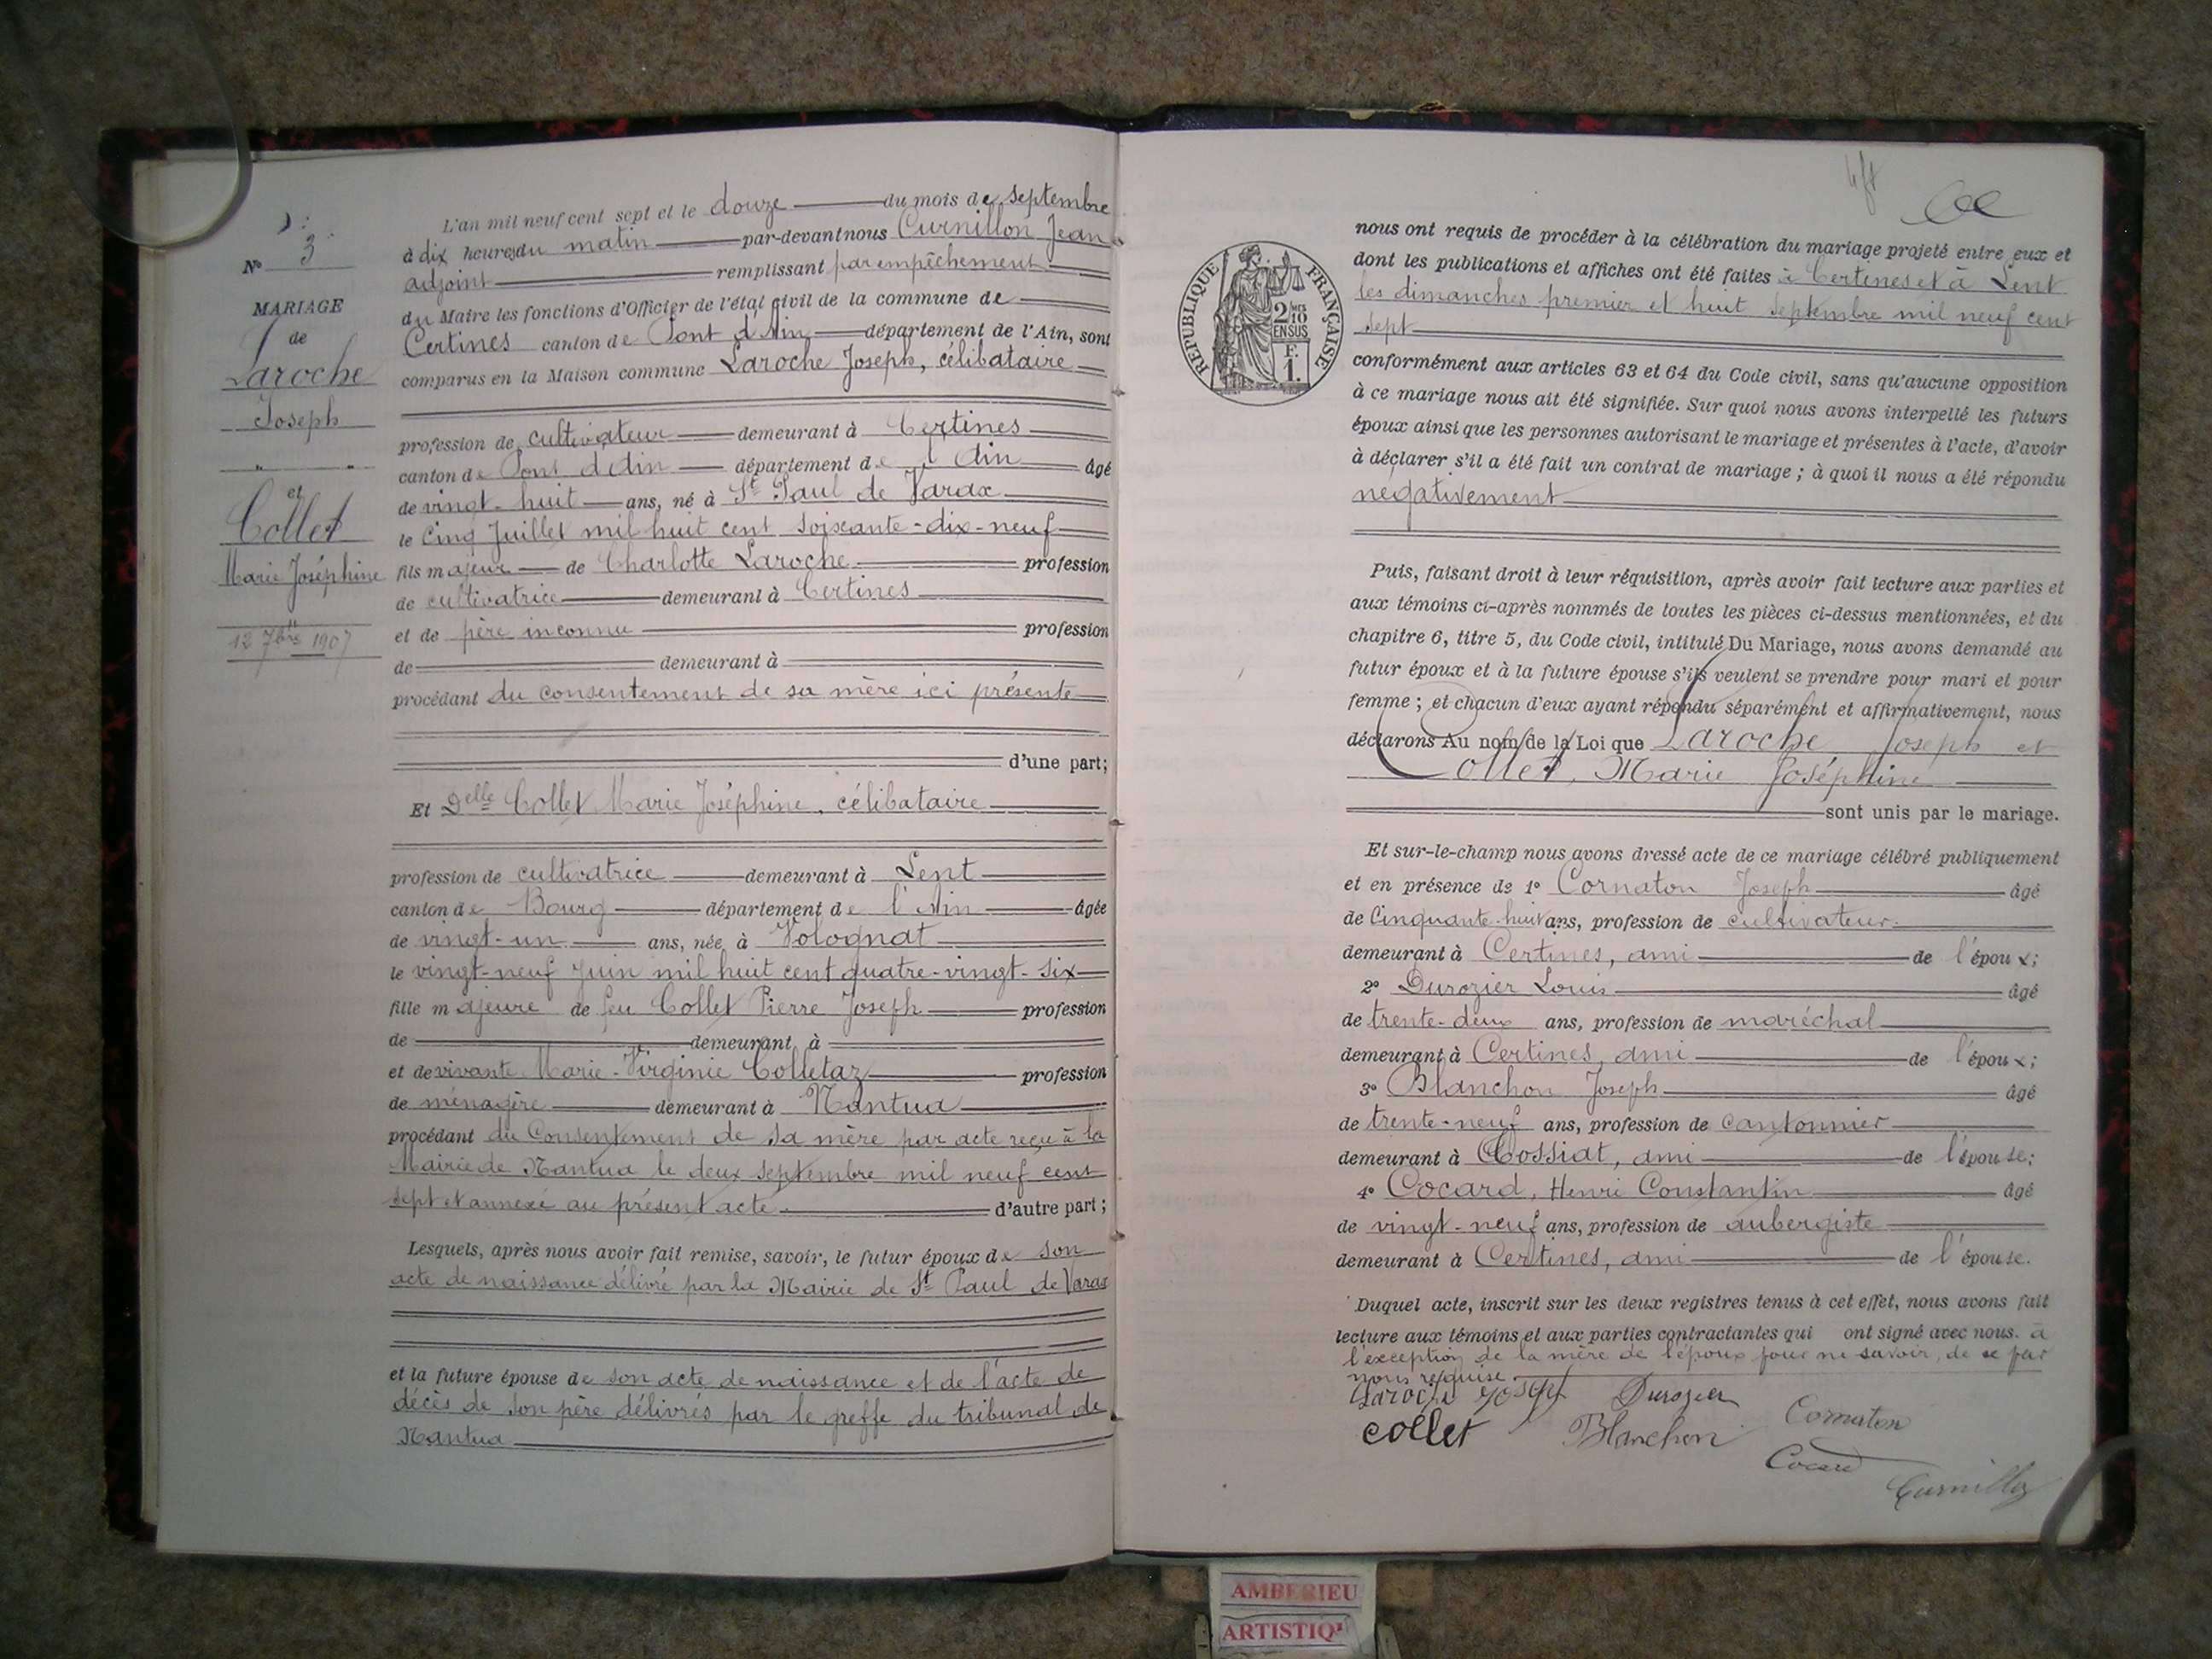 N° 3
MARIAGE
de
Laroche
Joseph
et
Collet
Marie Joséphine
12 7bre 1907
L'an mil neuf cent sept et le douze du mois de septembre
à dix heures du matin par-devant nous Curnillon Jean
adjoint remplissant par empêchement
du Maire les fonctions d'Officier de l'état civil de la commune de
Certines canton de Pont d'Ain département de l'Ain, sont
comparus en la Maison commune Laroche Joseph, célibataire
profession de cultivateur demeurant à Certines
canton de Pont d'Ain département de l'Ain âgé
de vingt-huit ans, né à St Paul de Varax
le cinq Juillet mil huit cent soixante-dix-neuf
fils majeur de Charlotte Laroche profession
de cultivatrice demeurant à Certines
et de père inconnu profession
de demeurant à
procédant du consentement de sa mère ici présente
d'une part;
Et Delle Collet Marie Joséphine, célibataire
profession de cultivatrice demeurant à Lent
canton de Bourg département de l'Ain âgée
de vingt-un ans, née à Volognat
le vingt-neuf juin mil huit cent quatre-vingt-six
fille majeure de feu Collet Pierre Joseph profession
de demeurant à
et de vivante Marie-Virginie Colletaz profession
de ménagère demeurant à Nantua
procédant du Consentement de sa mère par acte reçu à la
Mairie de Nantua le deux septembre mil neuf cent
sept et annexé au présent acte d'autre part;
Lesquels, après nous avoir fait remise, savoir, le futur époux de son
acte de naissance délivré par la Mairie de St Paul de Varax
et la future épouse de son acte de naissance et de l'acte de
décès de son père délivrés par le greffe du tribunal de
Nantua
RÉPUBLIQUE FRANÇAISE
2/10
EN SUS
F.
1.
nous ont requis de procéder à la célébration du mariage projeté entre eux et
dont les publications et affiches ont été faites à Certines et à Lent
les dimanches premier et huit septembre mil neuf cent
sept
conformément aux articles 63 et 64 du Code civil, sans qu'aucune opposition
à ce mariage nous ait été signifiée. Sur quoi nous avons interpellé les futurs
époux ainsi que les personnes autorisant le mariage et présentes à l'acte, d'avoir
à déclarer s'il a été fait un contrat de mariage; à quoi il nous a été répondu
négativement
Puis, faisant droit à leur réquisition, après avoir fait lecture aux parties et
aux témoins ci-après nommés de toutes les pièces ci-dessus mentionnées, et du
chapitre 6, titre 5, du Code civil, intitulé Du Mariage, nous avons demandé au
futur époux et à la future épouse s'ils veulent se prendre pour mari et pour
femme; et chacun d'eux ayant répondu séparément et affirmativement, nous
déclarons Au nom de la Loi que Laroche Joseph et
Collet, Marie Joséphine
sont unis par le mariage.
Et sur-le-champ nous avons dressé acte de ce mariage célébré publiquement
et en présence de 1° Cornaton Joseph âgé
de Cinquante-huit ans, profession de cultivateur
demeurant à Certines, ami de l'époux;
2° Durozier Louis âgé
de trente-deux ans, profession de maréchal
demeurant à Certines, ami de l'époux;
3° Blanchon Joseph âgé
de trente-neuf ans, profession de cantonnier
demeurant à Tossiat, ami de l'épouse;
4° Cocard, Henri Constantin âgé
de vingt-neuf ans, profession de aubergiste
demeurant à Certines, ami de l'épouse.
Duquel acte, inscrit sur les deux registres tenus à cet effet, nous avons fait
lecture aux témoins et aux parties contractantes qui ont signé avec nous. à
l'exception de la mère de l'époux pour ne savoir, de ce par
nous requise.
Laroche Joseph Durozier
collet Blanchon Cornaton
Cocard
Curnillon
AMBERIEU
ARTISTIQ